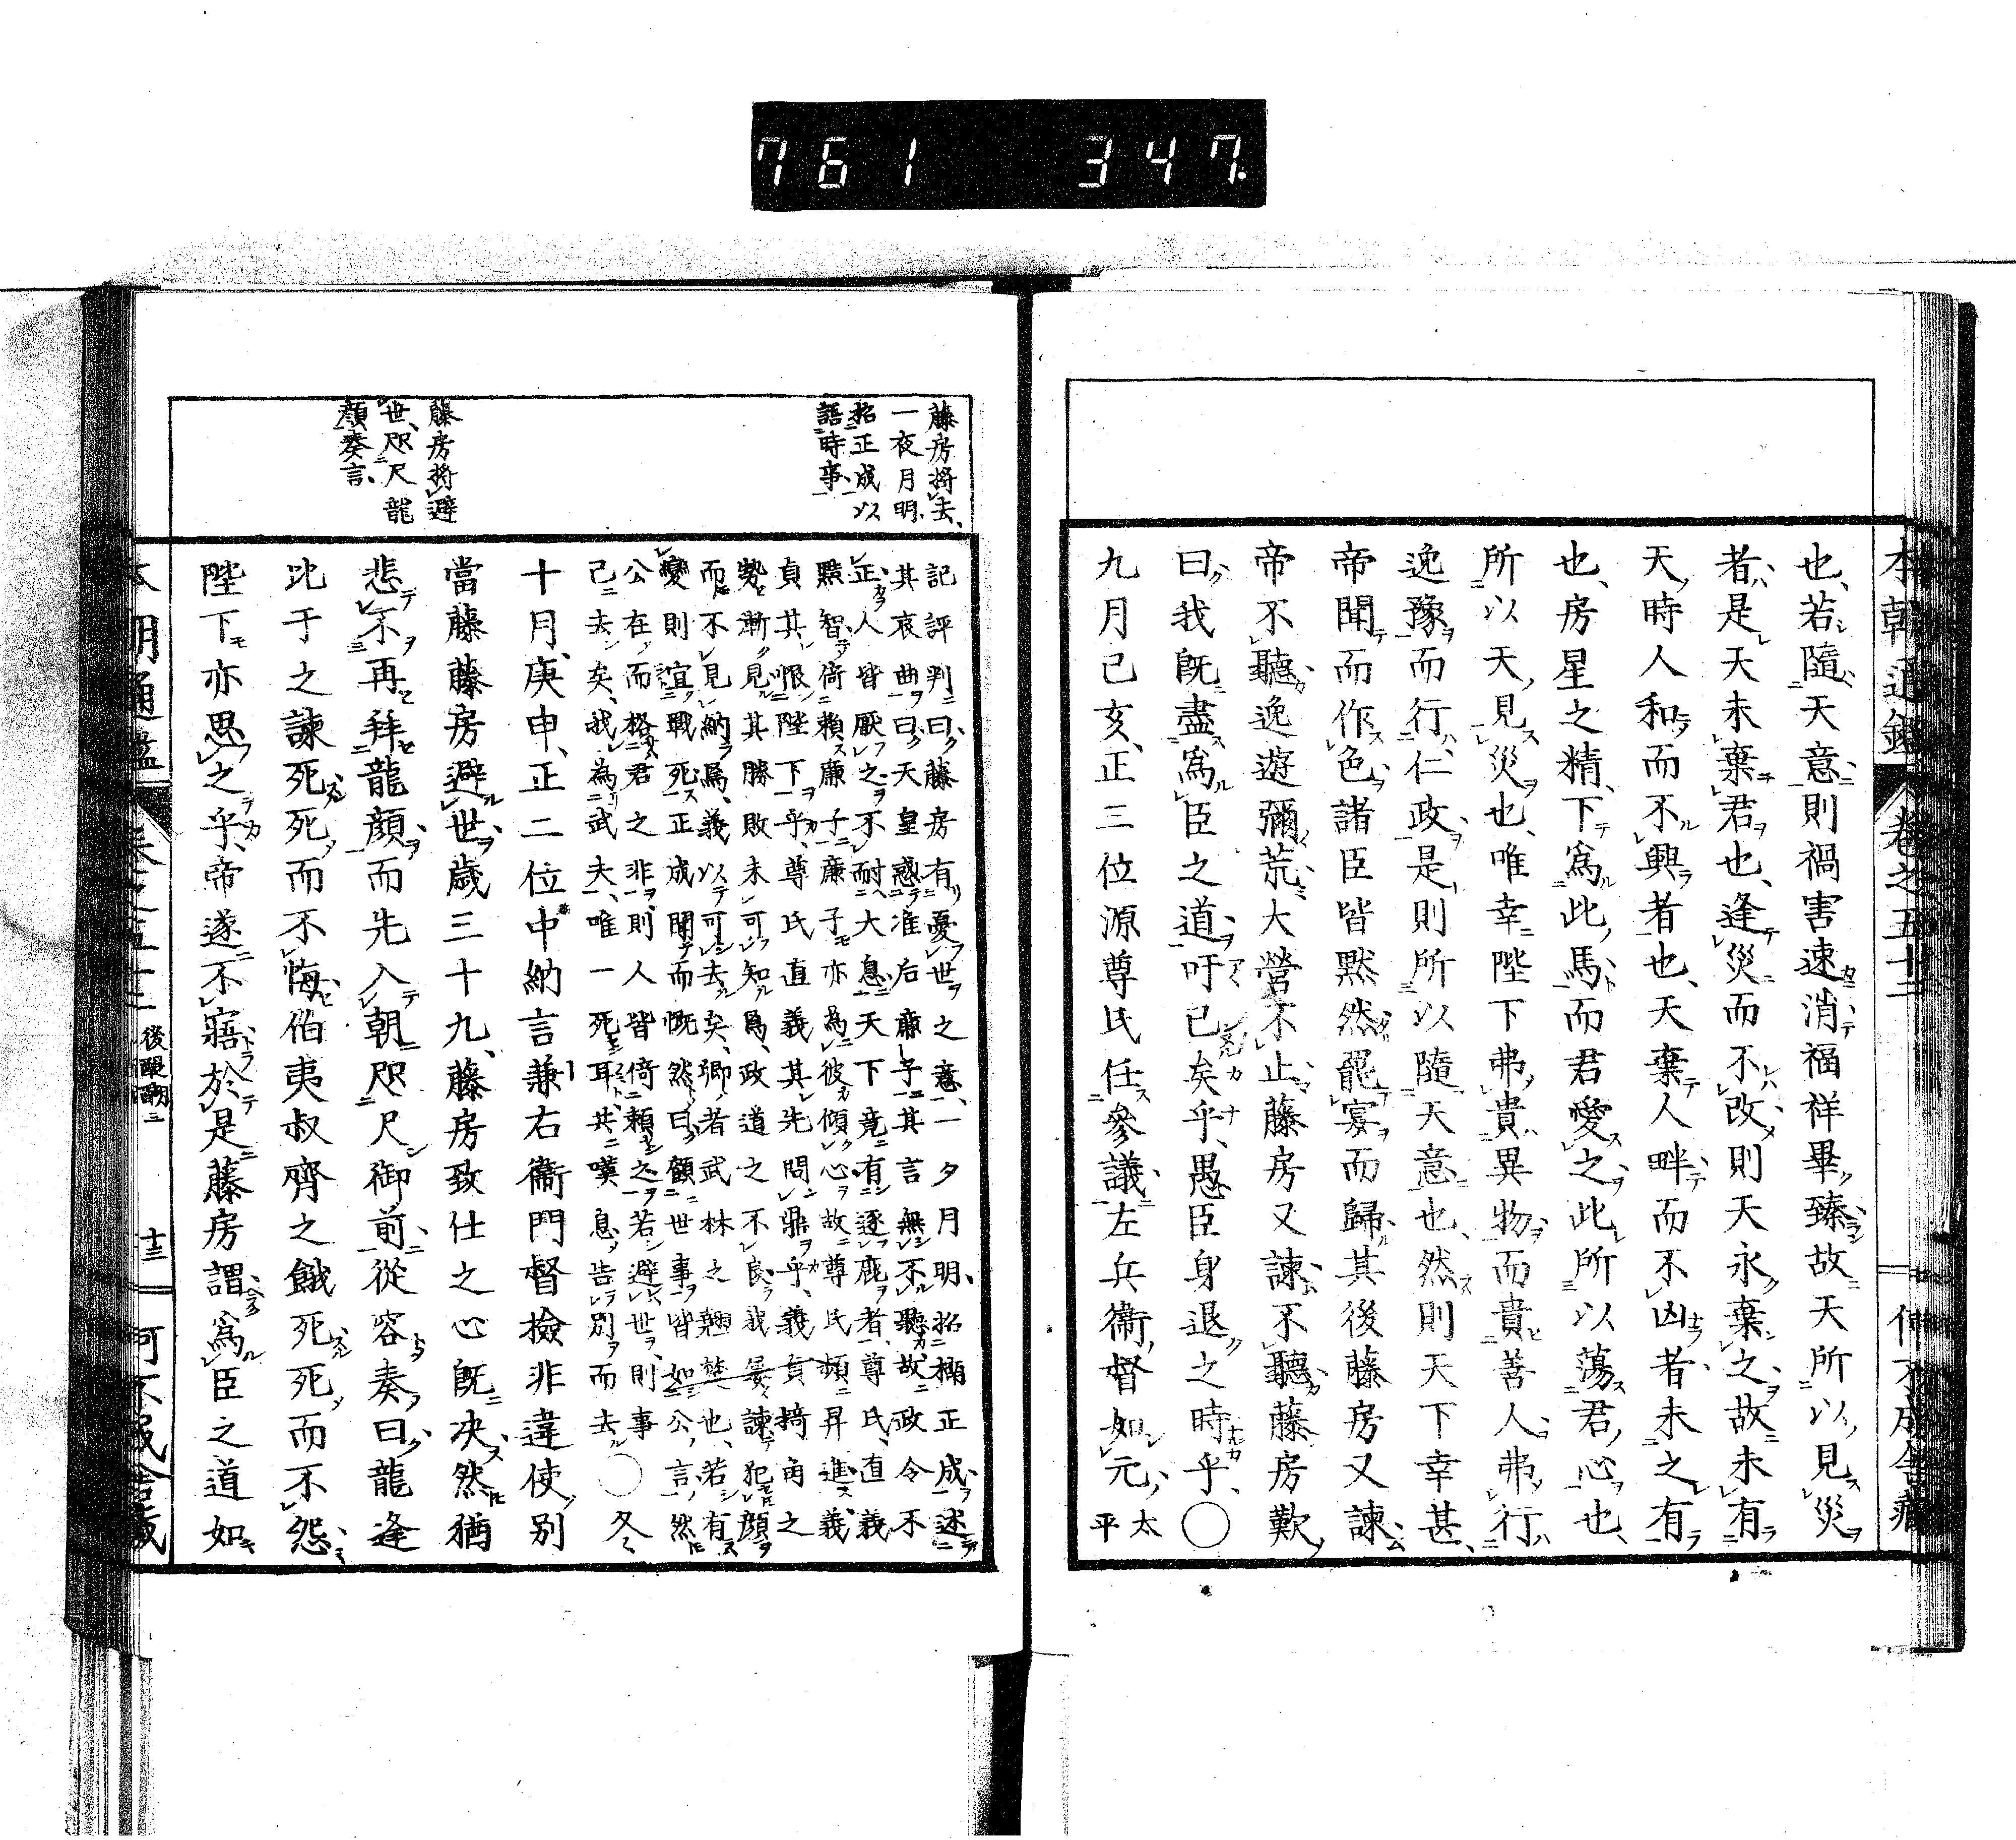 761 347.
本朝通鑑 卷之五十二
也、若隨天意則禍害速消福祥畢臻故天所以見災
者是天未棄君也、逢災而不改則天永棄之故未有
天時人和而不興者也、天棄人畔而不凶者未之有
也、房星之精下爲此馬而君愛之此所以蕩君心也、
所以天見災也、唯幸陛下弗貴異物而貴善人弗行
逸豫而行仁政是則所以隨天意也、然則天下幸甚、
帝聞而作色諸臣皆默然罷宴而歸其後藤房又諫
帝不聽逸遊彌荒大營不止藤房又諫不聽藤房歎
曰我既盡爲臣之道吁已矣乎、愚臣身退之時乎、○
九月己亥、正三位源尊氏任參議左兵衞督如元、太
平
藤房將去、
一夜月明、
招正成以
語時事
記評判曰、藤房有憂世之意、一夕月明、招楠正成述
其哀曲曰、天皇惑准后廉子其言無不聽故政令不
正人皆厭之不耐大息天下竟有逐鹿者、尊氏、直義
黠智倚賴廉子廉子亦爲彼傾心故尊氏頻昇進、義
貞其恨陛下乎、尊氏直義其先問鼎乎、義貞掎角之
勢漸見其勝敗未可知焉、政道之不良我屢諫犯顏
而不見納焉、義以可去矣、卿者武林之翹楚也、若有
變則宜戰死正成聞而慨然曰顧世事皆如公言、然
公在而格君之非則人皆倚賴之若避世、則事
已去矣、我為武夫、唯一死耳、共嘆息告別而去○冬
十月、庚申、正二位中納言兼右衞門督檢非違使別
藤房將避
世、咫尺龍
顏奏言、
當藤藤房避世、歲三十九、藤房致仕之心既決然猶
悲不再拜龍顏而先入朝咫尺御前從容奏曰、龍逢
比干之諫死死而不悔伯夷叔齊之餓死死而不怨
陛下亦思之乎、帝遂不寤於是藤房謂爲臣之道如
後醍醐二
十三